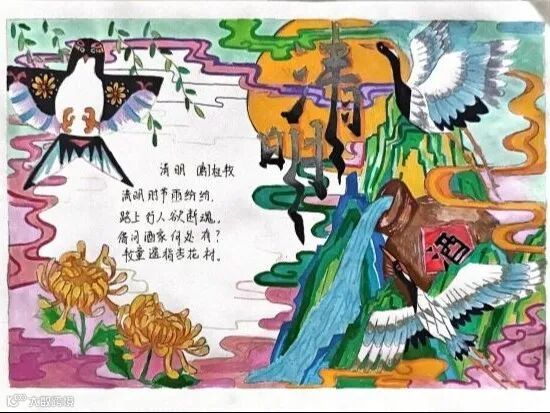 清明
清明 唐|杜牧
清明时节雨纷纷,
路上行人欲断魂。
借问酒家何处有?
牧童遥指杏花村。
酒
大数跨境